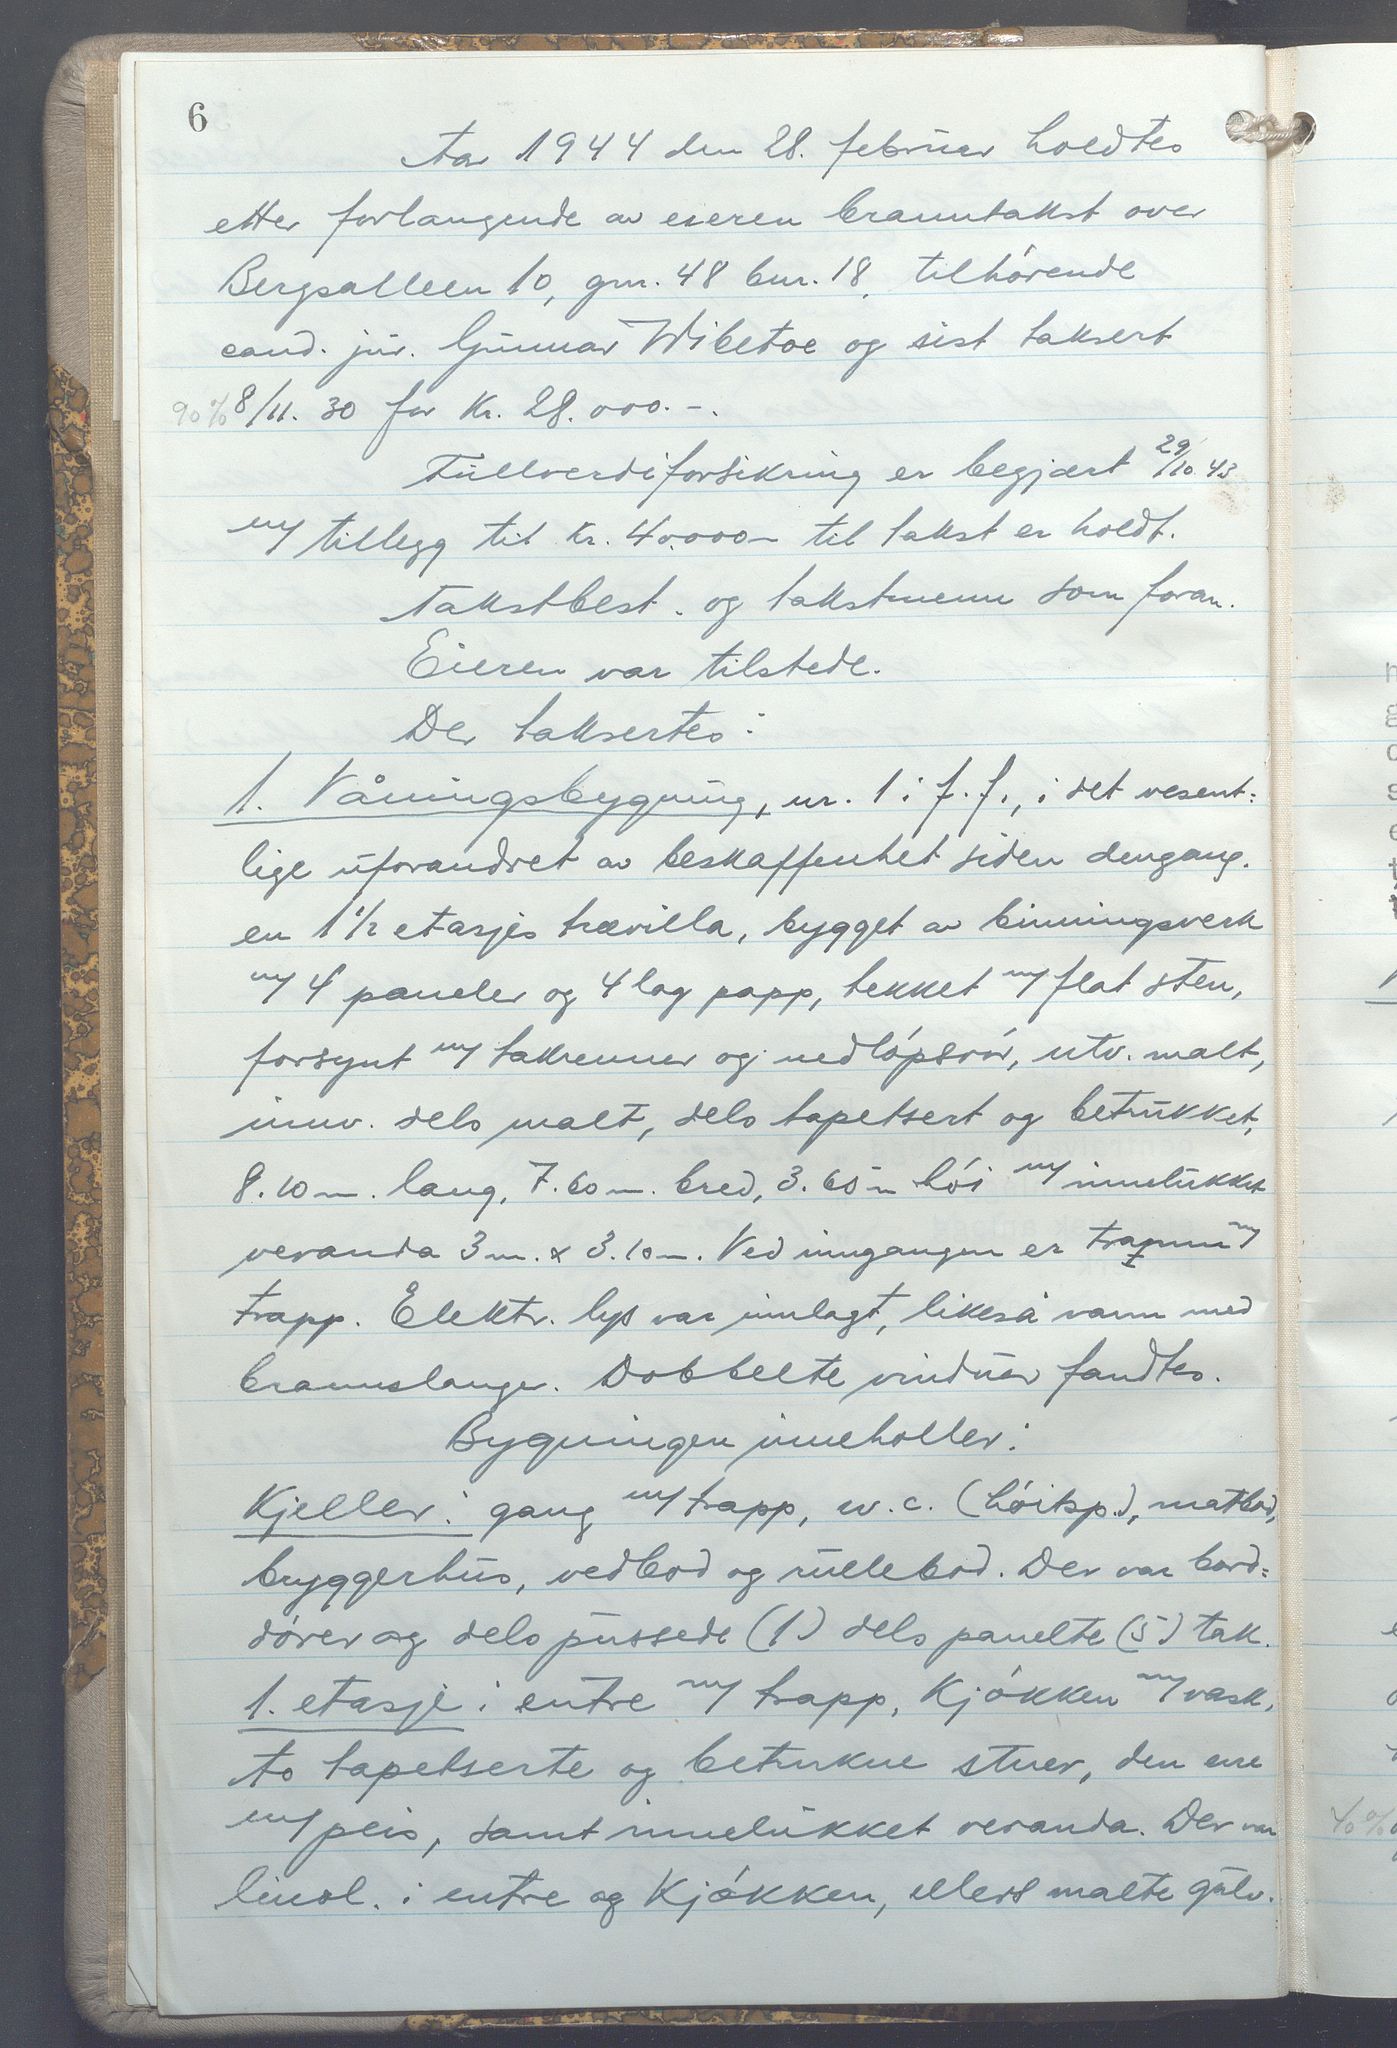 6
Aar 1944 den 28. februar holdtes
etter forlangende av eieren branntakst over
Bergsalleen 10, gnr. 48 bnr. 18, tilhørende
cand. jur. Gunnar Wibetoe og sist taksert
90% 8/11. 30 for Kr. 28.000.-.
Fullverdiforsikring er begjært 29/10.43
m/ tillegg til Kr. 40.000- til takst er holdt.
Takstbest. og takstmenn som foran.
Eieren var tilstede.
Der taksertes:
1. Våningsbygning, nr. 1 i f.f., i det vesent=
lige uforandret av beskaffenhet siden dengang.
en 1 1/2 etasjes trævilla, bygget av binningsverk
m/ 4 paneler og 4 lag papp, tekket m/ flat sten,
forsynt m/ takrenner og nedløpsrør, utv. malt,
innv. dels malt, dels tapetsert og betrukket,
8.10 m. lang, 7.60 m. bred, 3.60 m høi m/ innelukket
veranda 3 m. x 3.10 m. Ved inngangen er tramm m/
trapp. Elektr. lys var innlagt, likeså vann med
brannslange. Dobbelte vinduer fandtes.
Bygningen inneholler:
Kjeller: gang m/ trapp, w.c. (høitsp.), matbod,
bryggerhus, vedbod og rullebod. Der var bord=
dører og dels pussede (1) dels panelte (5) tak.
1. etasje: entre m/ trapp, kjøkken m/ vask,
to tapetserte og betrukne stuer, den ene
m/ peis, samt innelukket veranda. Der var
linol. i entre og kjøkken, ellers malte gulv.
40%